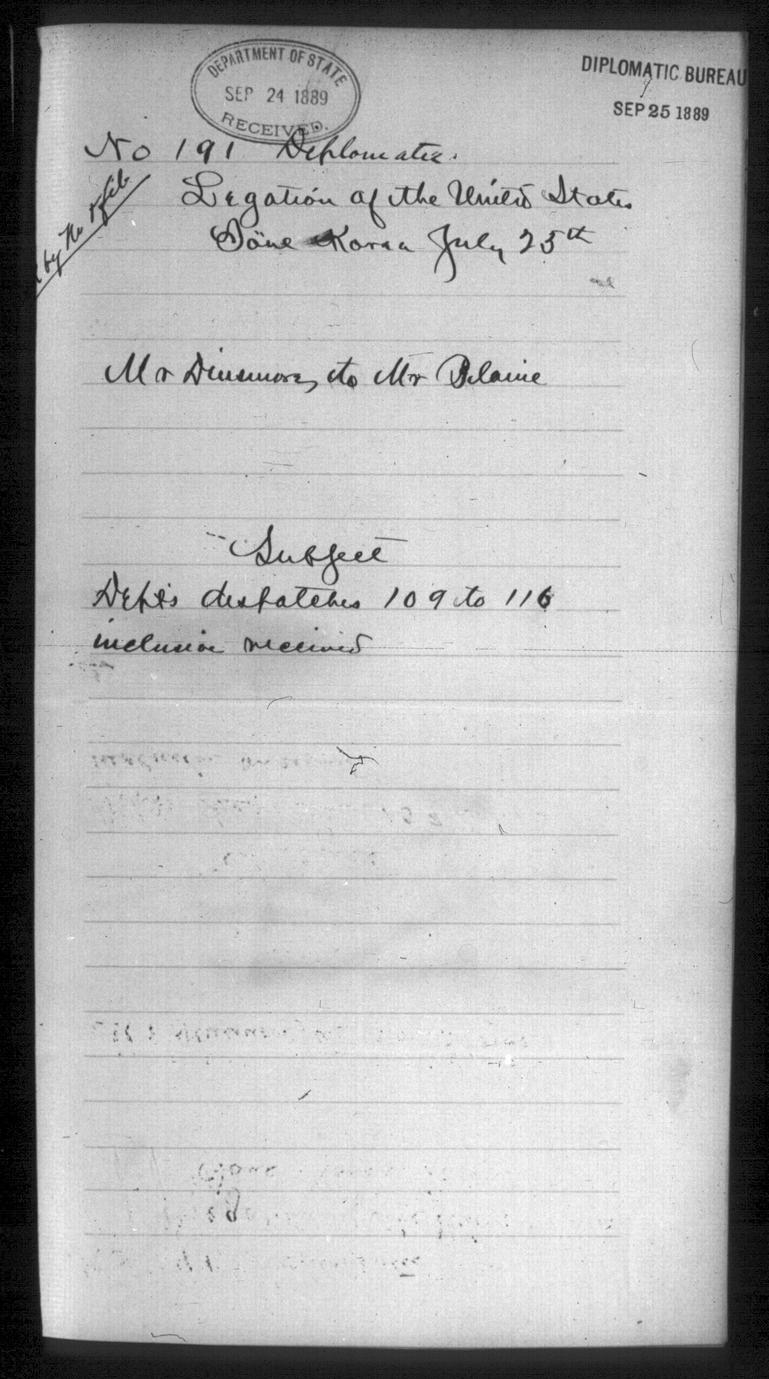 DEPARTMENT OF STATE
SEP 24 1889
RECEIVED.
DIPLOMATIC BUREAU
SEP 25 1889
No 191 Diplomatic.
Legation of the United States
Söul Korea July 25th
by
Mr Dinsmore, to Mr Blaine
Subject
Dept's despatches 109 to 116
inclusive received